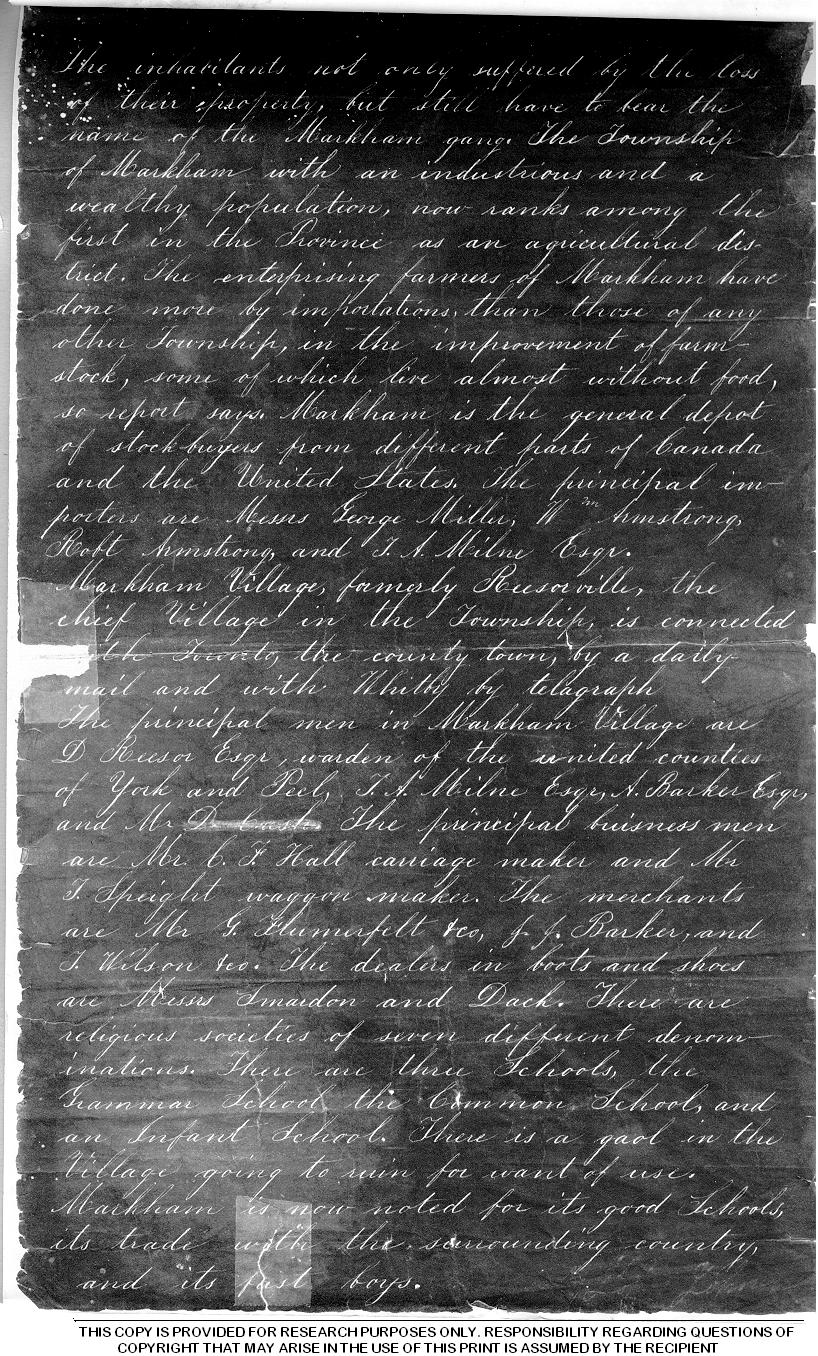 The inhabitants not only suffered by the loss
of their property, but still have to bear the
name of the Markham gang. The Township
of Markham with an industrious and a
wealthy population, now ranks among the
first in the Province as an agricultural dis-
trict. The enterprising farmers of Markham have
done more by importations, than those of any
other Township, in the improvement of farm-
stock, some of which live almost without food,
so report says. Markham is the general depot
of stock-buyers from different parts of Canada
and the United States. The principal im-
porters are Messrs George Miller, Wm Armstrong,
Robt Armstrong, and T. A. Milne Esqr.
Markham Village, formerly Reesorville, the
chief Village in the Township, is connected
with Toronto, the county town, by a daily
mail and with Whitby by telagraph
The principal men in Markham Village are
D Reesor Esqr, warden of the united counties
of York and Peel, T. A. Milne Esqr, A. Barker Esqr,
and Mr D. Cash. The principal buisness men
are Mr. C. F. Hall carriage maker and Mr
T. Speight waggon maker. The merchants
are Mr G. Flumerfelt &co, J. J. Barker, and
T. Wilson &co. The dealers in boots and shoes
are Messrs Smardon and Dack. There are
religious societies of seven different denom-
inations. There are three Schools, the
Grammar School, the Common School, and
an Infant School. There is a gaol in the
Village going to ruin for want of use.
Markham is now noted for its good Schools,
its trade with the surrounding country,
and its fast boys.
THIS COPY IS PROVIDED FOR RESEARCH PURPOSES ONLY. RESPONSIBILITY REGARDING QUESTIONS OF
COPYRIGHT THAT MAY ARISE IN THE USE OF THIS PRINT IS ASSUMED BY THE RECIPIENT